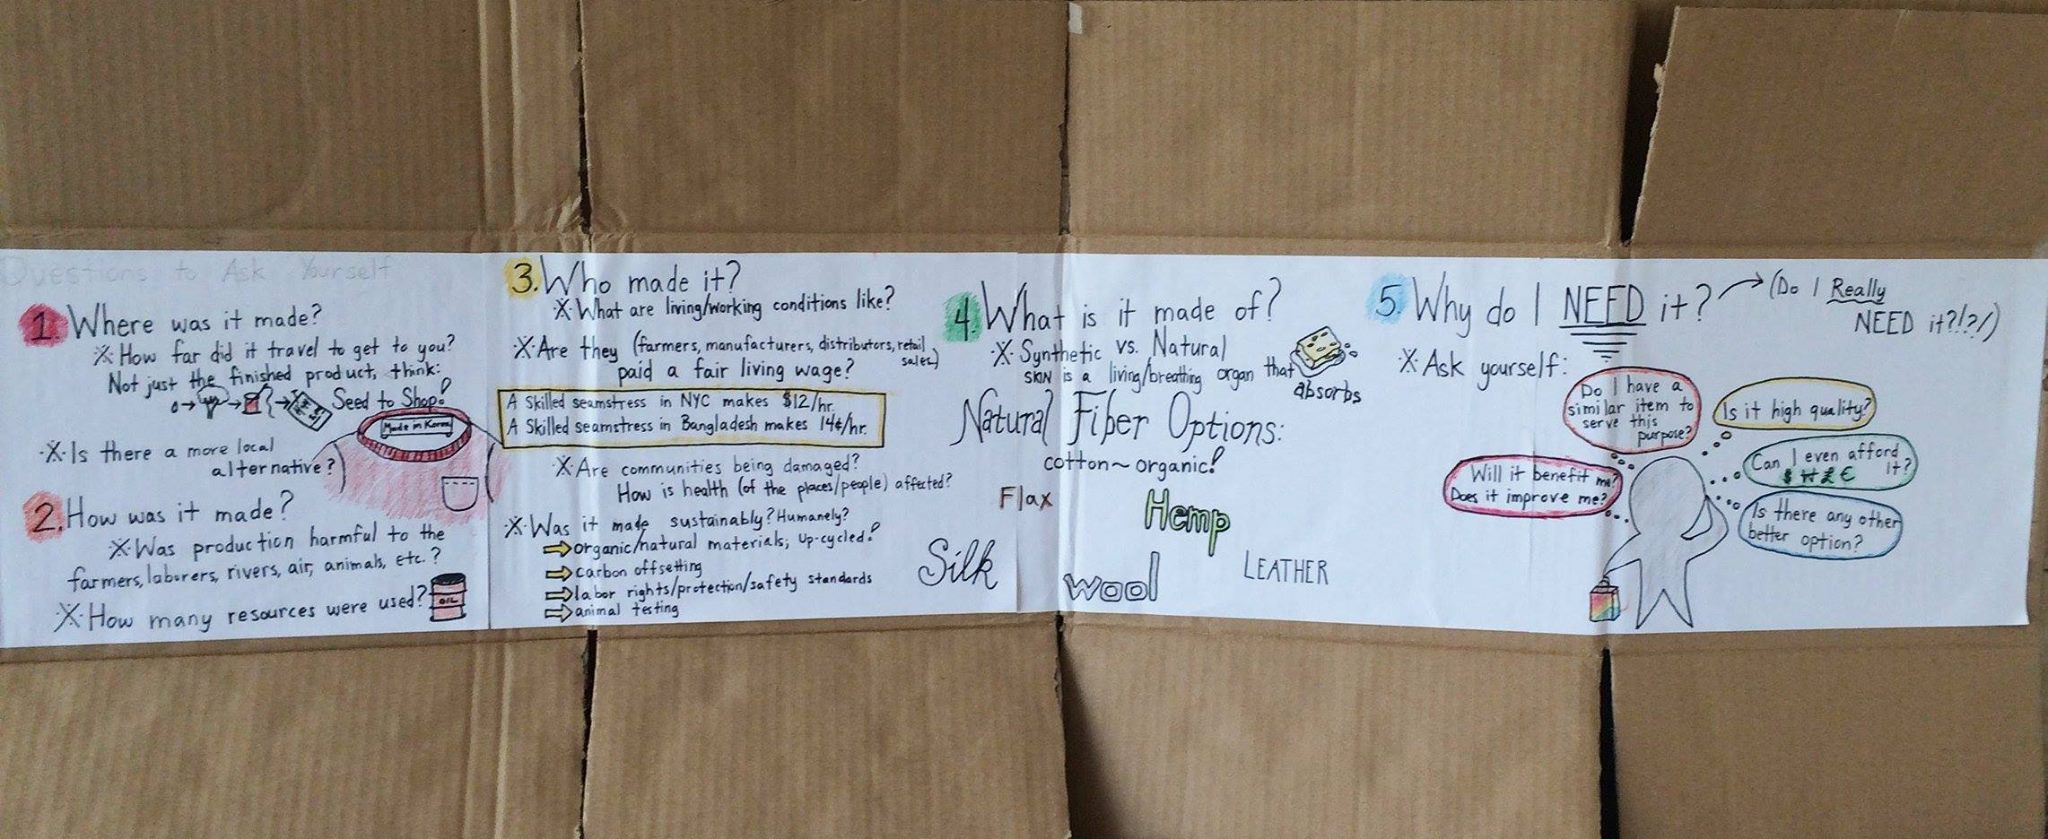 Questions to Ask Yourself
1. Where was it made?
How far did it travel to get to you?
Not just the finished product, think:
Seed to Shop!
Made in Korea
Is there a more local
alternative?
2. How was it made?
Was production harmful to the
farmers, laborers, rivers, air, animals, etc.?
How many resources were used?
OIL
3. Who made it?
What are living/working conditions like?
Are they (farmers, manufacturers, distributors, retail
sales)
paid a fair living wage?
A skilled seamstress in NYC makes $12/hr.
A skilled seamstress in Bangladesh makes 14¢/hr.
Are communities being damaged?
How is health (of the places/people) affected?
Was it made sustainably? Humanely?
organic/natural materials; up-cycled!
carbon offsetting
labor rights/protection/safety standards
animal testing
4. What is it made of?
Synthetic vs. Natural
SKIN is a living/breathing organ that
absorbs
Natural Fiber Options:
cotton~organic!
Flax
Hemp
Silk
wool
LEATHER
5. Why do I NEED it?
(Do I Really
NEED it?!?!)
Ask yourself:
Do I have a
similar item to
serve this
purpose?
Is it high quality?
Can I even afford
it?
$ ₩ £ €
Will it benefit me?
Does it improve me?
Is there any other
better option?